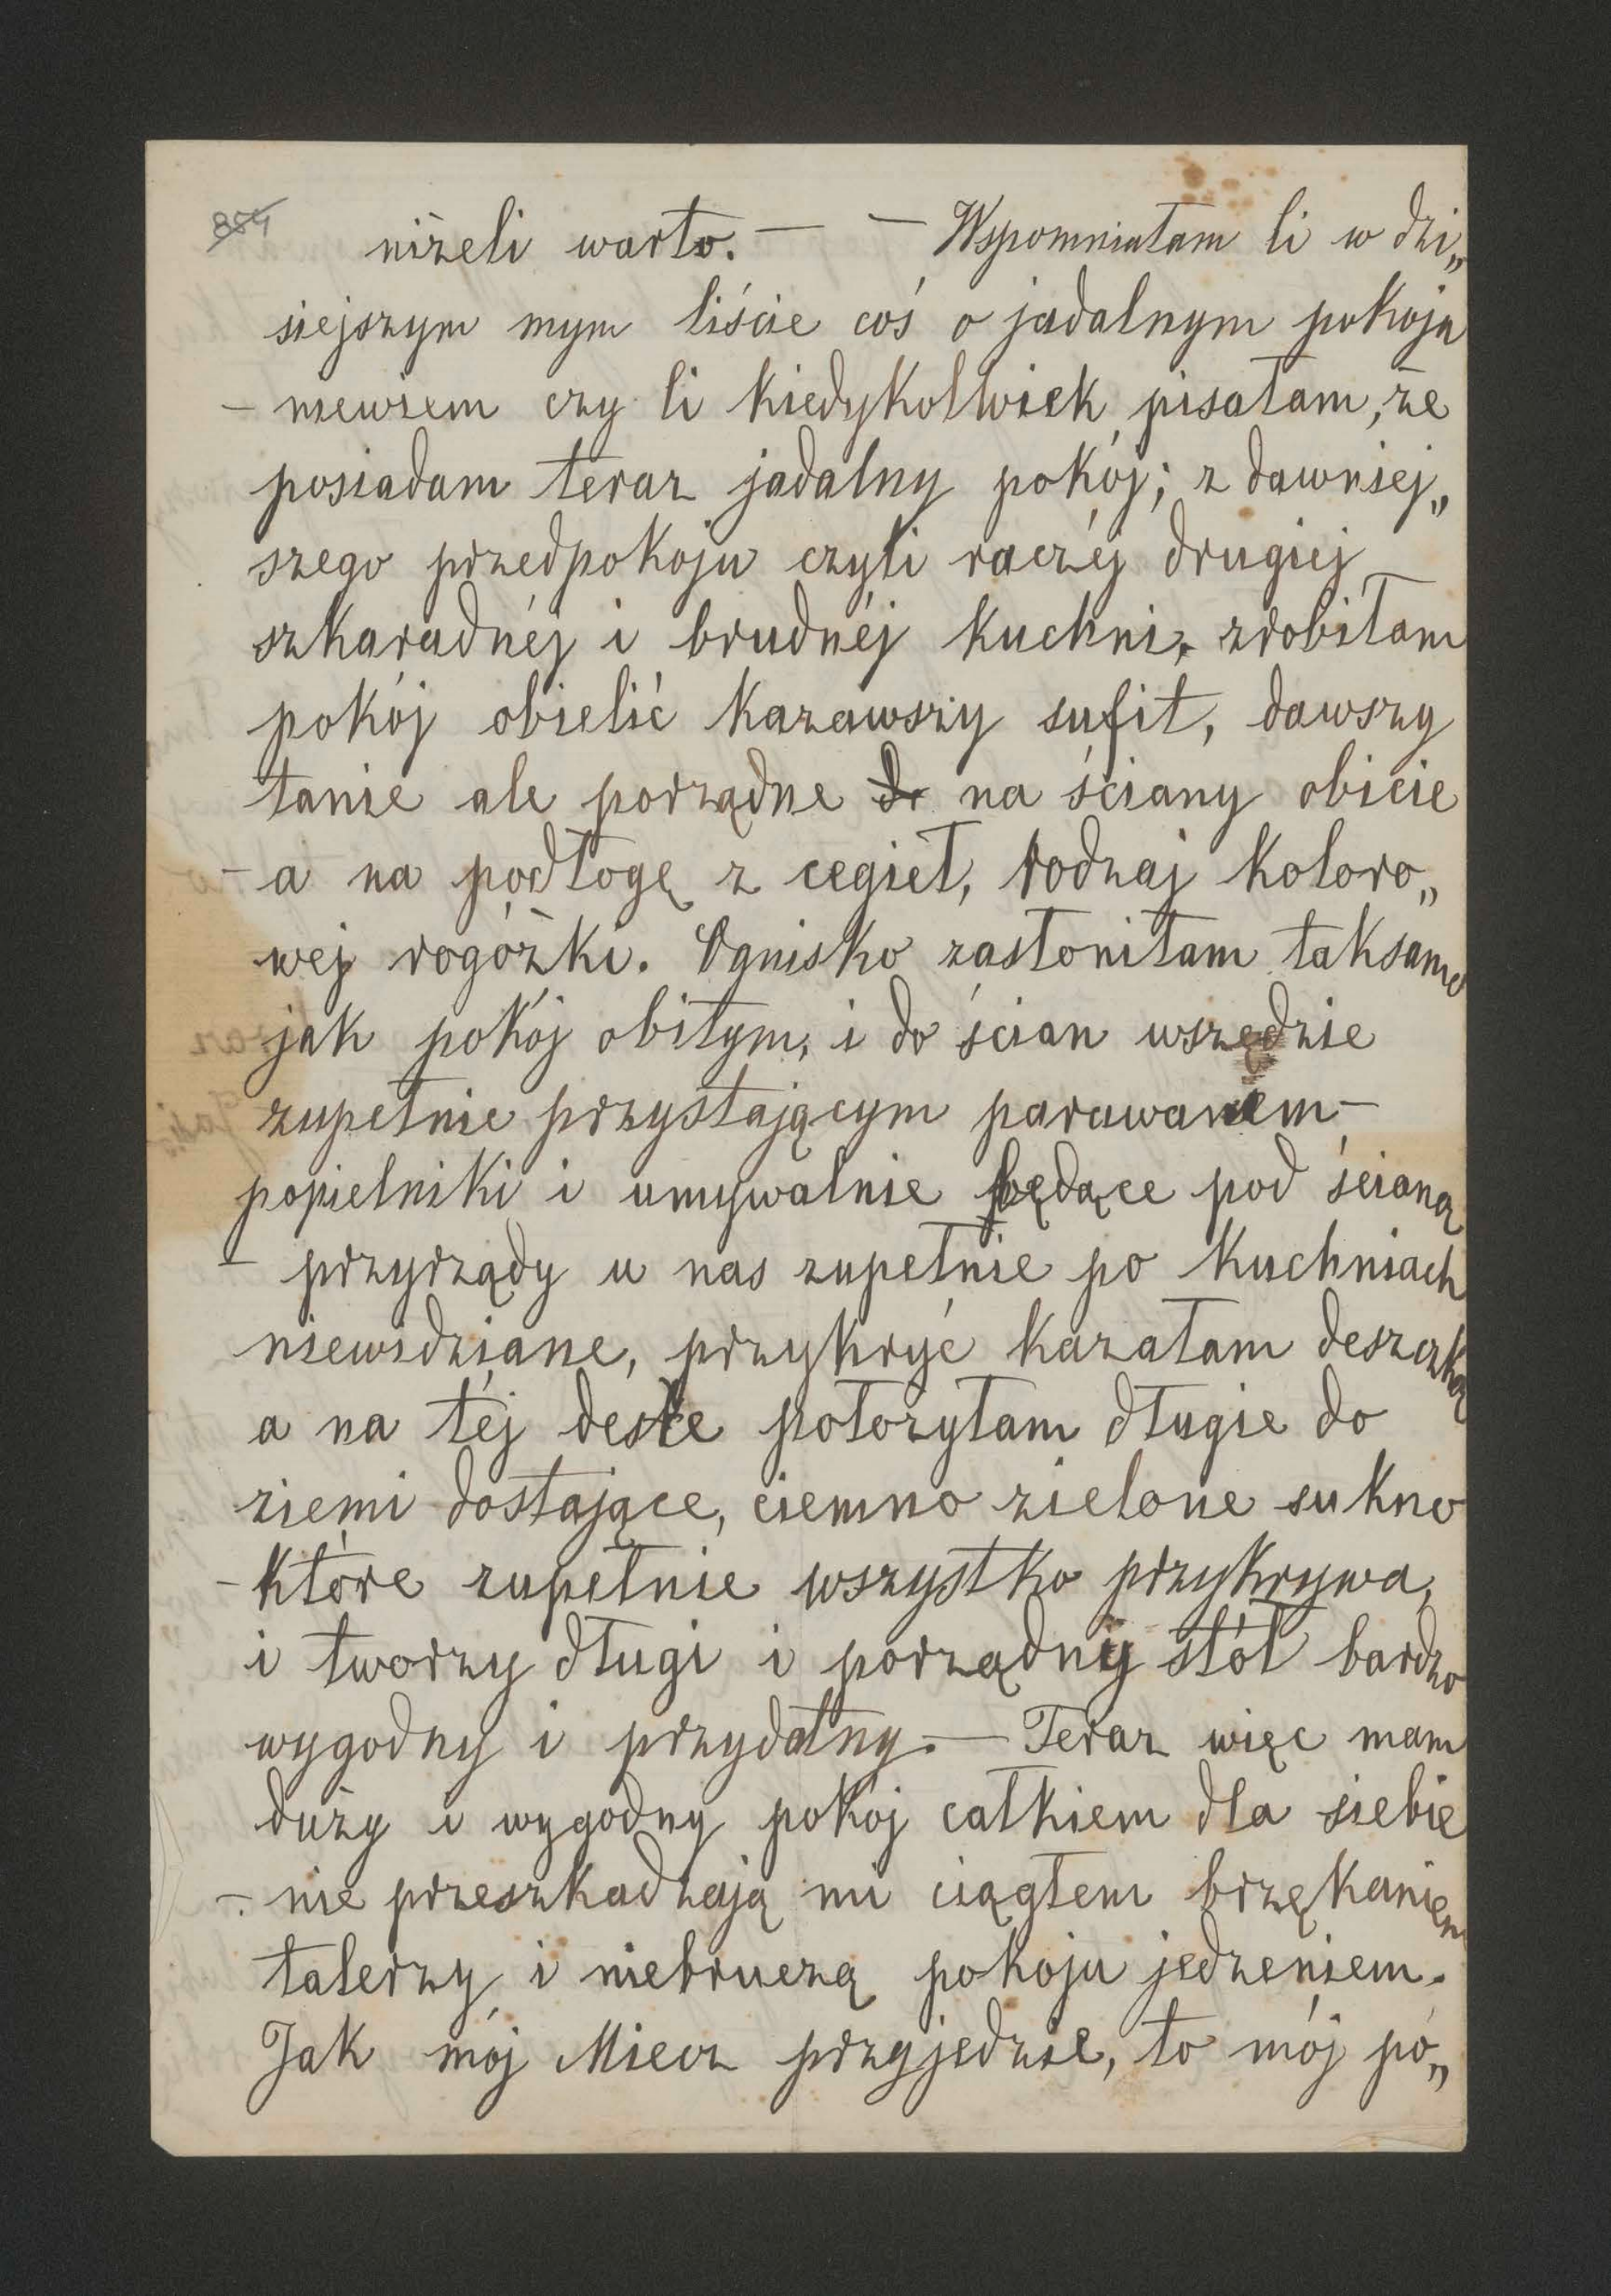 854
niżeli warto. — — Wspomniałam li w dzi„
siejszym mym liście coś o jadalnym pokoju
– niewiem czy li kiedykolwiek pisałam, że
posiadam teraz jadalny pokój; z dawniej„
szego przedpokoju czyli raczéj drugiej
szkaradnéj i brudnéj kuchni, zrobiłam
pokój obielić kazawszy sufit, dawszy
tanie ale porządne do na ściany obicie
– a na podłogę z cegieł, rodzaj koloro„
wej rogóżki. Ognisko zasłoniłam taksamo
jak pokój obitym, i do ścian wszędzie
zupełnie przystającym parawanem –
popielniki i umywalnie będące pod ścianą
– przyrządy u nas zupełnie po kuchniach
niewidziane, przykryć kazałam deszczką
a na téj desce położyłam długie do
ziemi dostające, ciemno zielone sukno
– które zupełnie wszystko przykrywa,
i tworzy długi i porządny stół bardzo
wygodny i przydatny. — Teraz więc mam
duży i wygodny pokój całkiem dla siebie
– nie przeszkadzają mi ciągłem brzękaniem
talerzy i niebruczą pokoju jedzeniem.
Jak mój Miecz przyjedzie, to mój po„